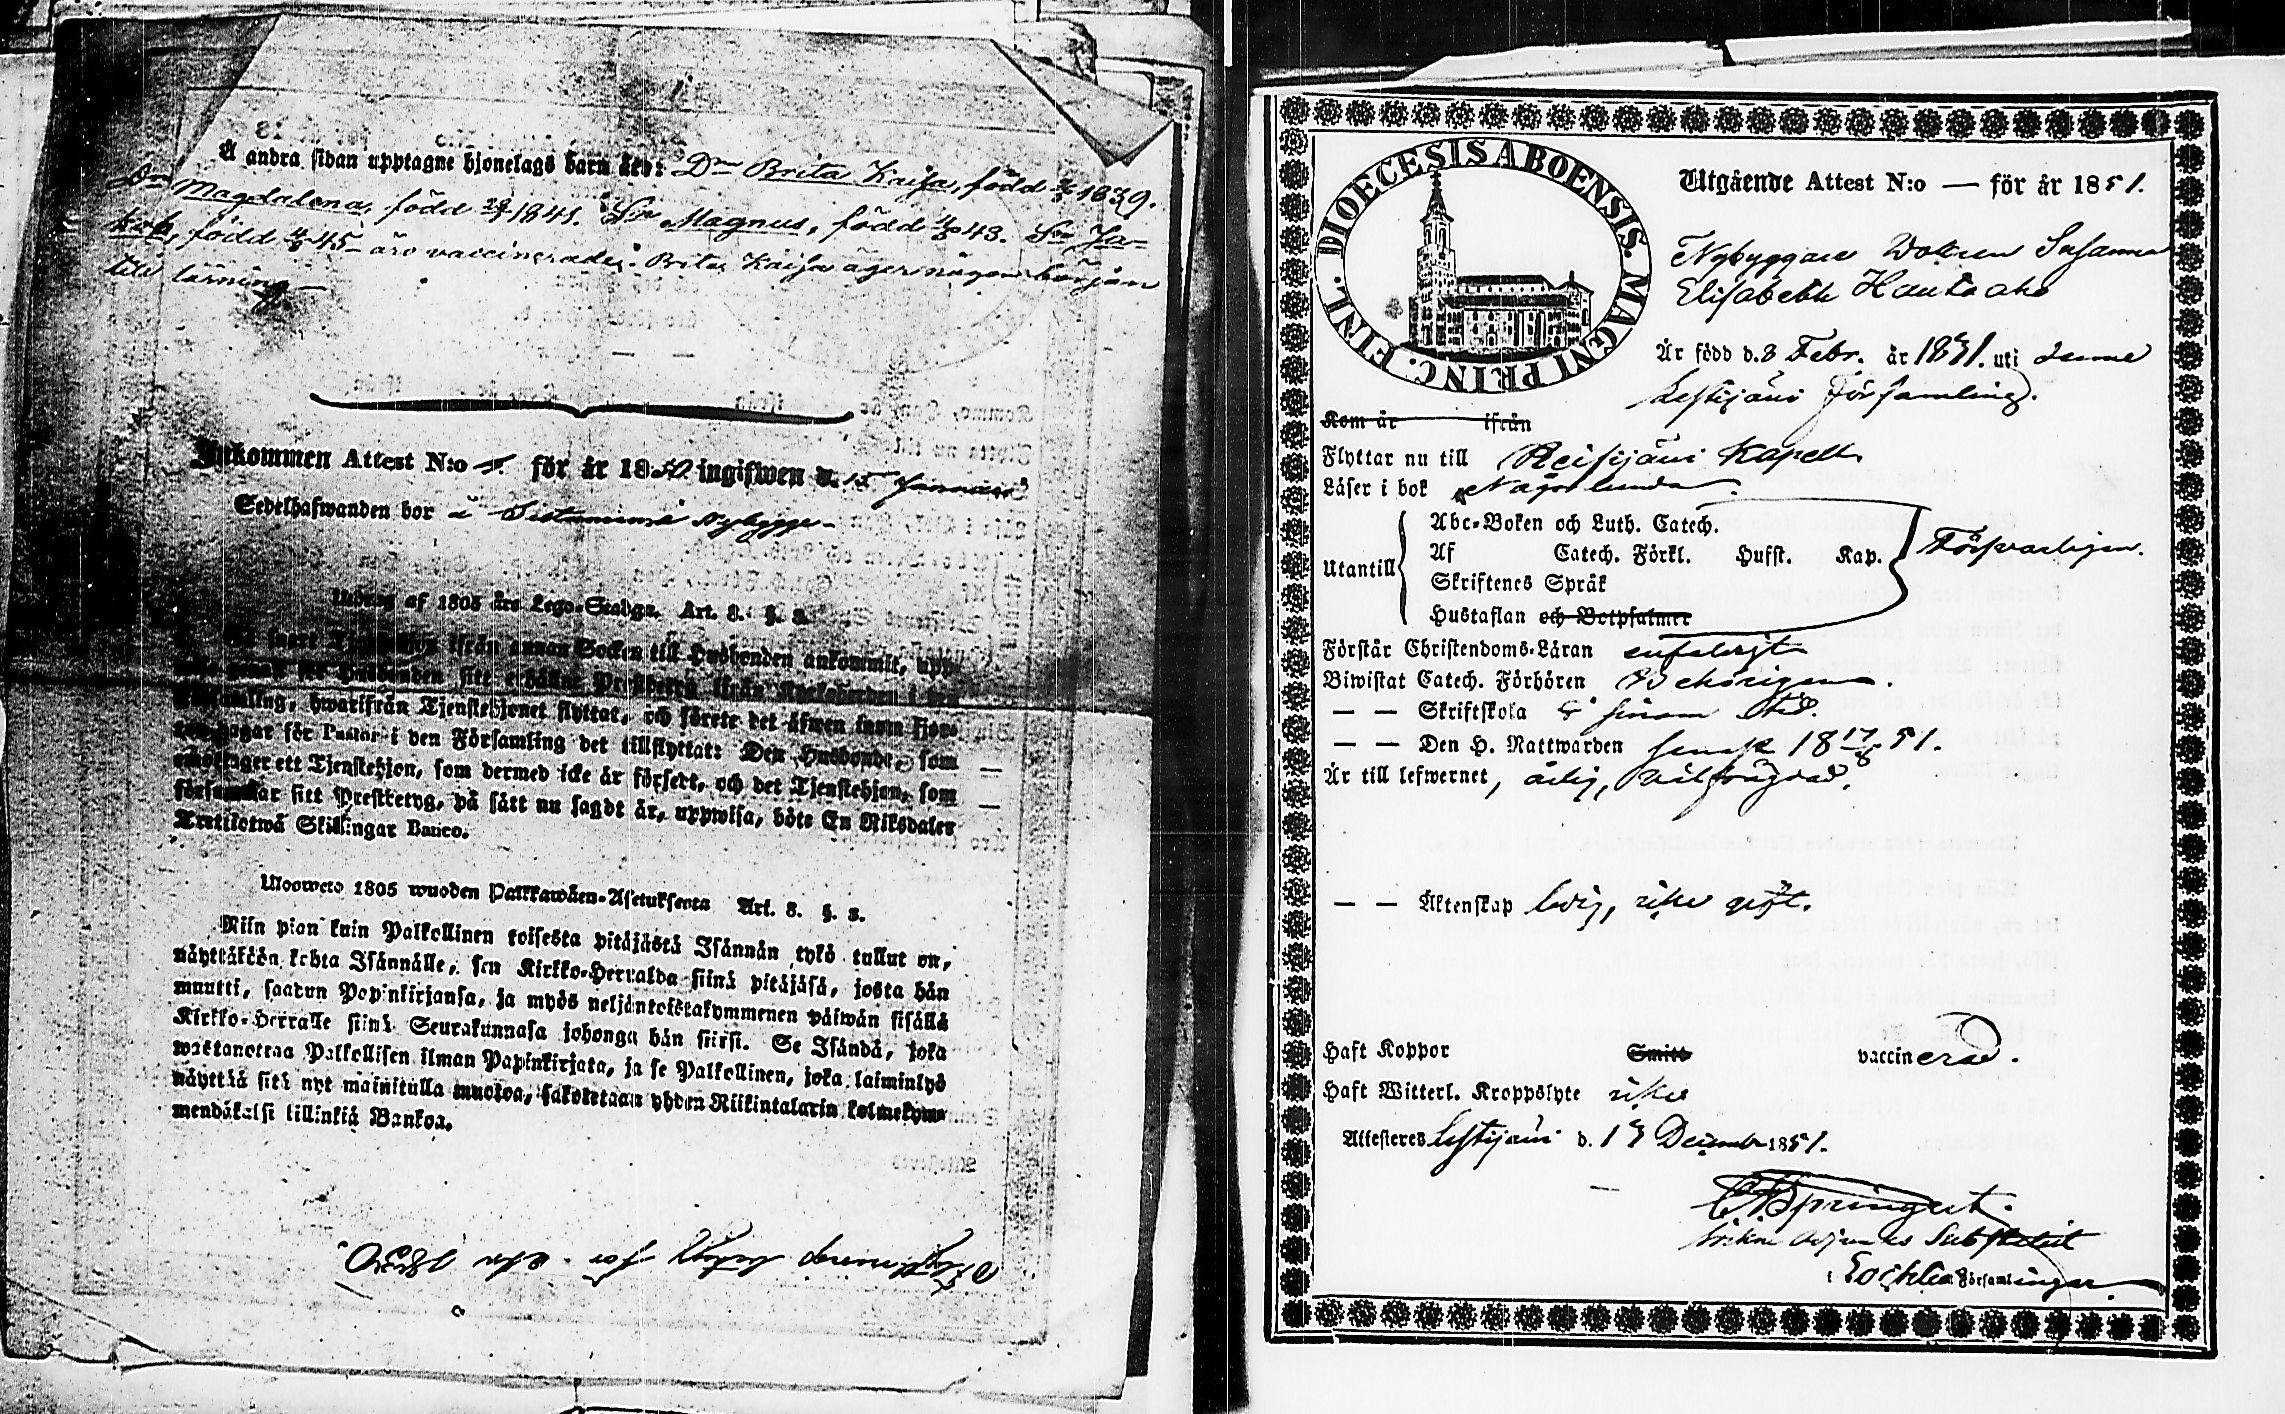 Å andra sidan upptagne hjonelags barn äro: Dr Brita Kaisa, född 1839.
Dr Magdalena, född 1841. Sn Magnus, född 43. Sn Ja-
kob, född 45 äro vaccinerade. Brita Kaisa äger någon början
till läsning
Inkommen Attest N:o för år 1850 ingifwen d. 15 Januari
Sedelhafwanden bor å Nybygge
Utdrag af 1805 års Lego-Stadga. Art. 8. §. 3.
ifrån annan Socken till Husbonden ankommit, upp-
Husbonden sitt Prestbetyg ifrån Kyrkoherden i den
Församling, hwarifrån Tjenstehjonet flyttat, och förete det äfwen inom fjor-
ton dagar för Pastor i den Församling det tillflyttat: Den Husbonde, som
emottager ett Tjenstehjon, som dermed icke är försedt, och det Tjenstehjon, som
försummar sitt Prestbetyg, på sätt nu sagdt är, uppwisa, böte En Riksdaler
Trettiotwå Skillingar Banco.
Ulosweto 1805 wuoden Palkkawäen-Asetuksesta Art. 8. §. 3.
Niin pian kuin Palkollinen toisesta pitäjästä Isännän tykö tullut on,
näyttäköön kohta Isännälle, sen Kirkko-Herralda siinä pitäjäsä, josta hän
muutti, saadun Papinkirjansa, ja myös neljäntoistakymmenen päiwän sisällä
Kirkko-Herralle siinä Seurakunnasa johonga hän siirsi. Se Isändä, joka
wastanottaa Palkollisen ilman Papinkirjata, ja se Palkollinen, joka laiminlyö
näyttää sitä nyt mainitulla muotoa, sakotetaan yhden Riikintalarin kolmekym-
mendäkaksi killinkiä Bankoa.
DIOECESIS ABOENSIS. MAGNI PRINC. FINL.
Utgående Attest N:o — för år 1851.
Nybyggare Dottren Susanna
Elisabeth Hautaaho
Är född d. 8 Febr. år 1831. uti denne
Lestijärvi Församling.
Kom år ifrån
Flyttar nu till Reisijärvi Kapell
Läser i bok Någorlunda.
Utantill Abc-Boken och Luth. Catech.
Af Catech. Förkl. Husst. Kap. Försvarligen.
Skriftenes Språk
Hustaflan och Botpsalmer
Förstår Christendoms-Läran enfaldigt
Biwistat Catech. Förhören Behörigen.
— — Skriftskola i sinom tid.
— — Den H. Nattwarden senast 18 51.
Är till lefwernet, ärlig, välfrägdad.
— — Äktenskap ledig, icke gift.
Haft Koppor Smitt vaccinerad.
Haft Witterl. Kroppslyte icke
Attesteras Lestijärvi d. 13 December 1851.
Substitut
i Lochteå Församlingar.